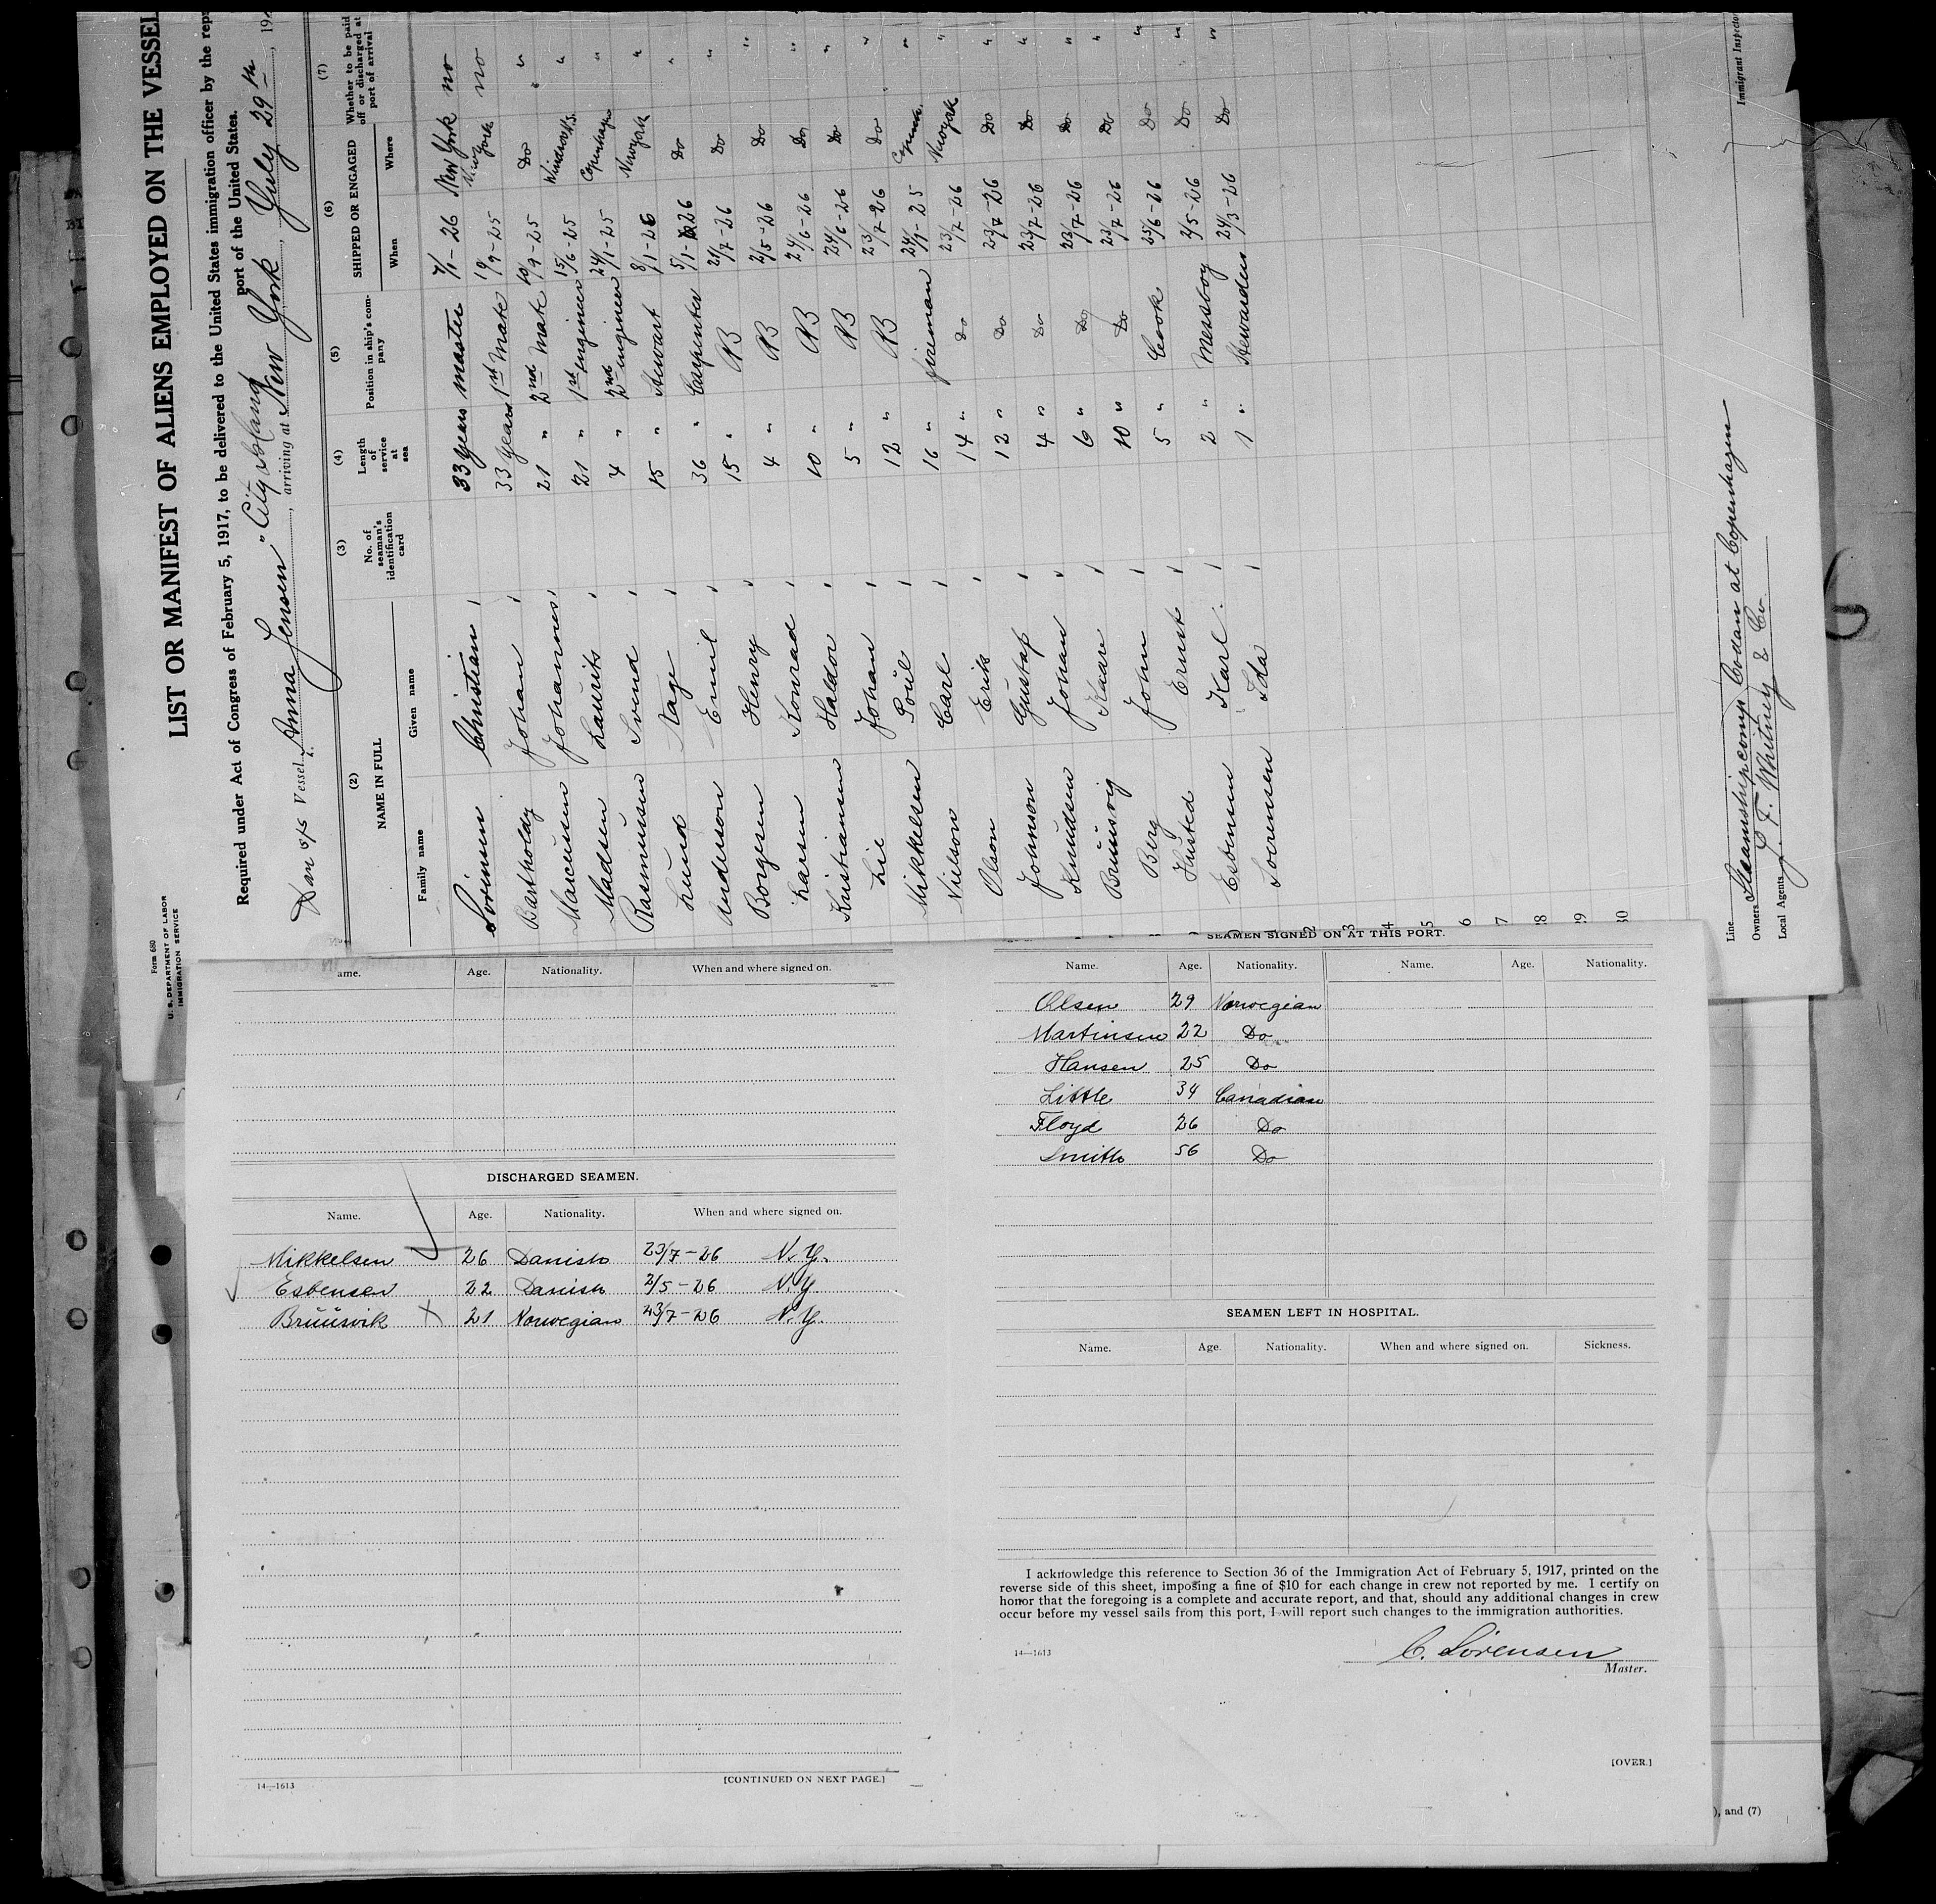 Form 680
U. S. DEPARTMENT OF LABOR
IMMIGRATION SERVICE
LIST OR MANIFEST OF ALIENS EMPLOYED ON THE VESSEL
Required under Act of Congress of February 5, 1917, to be delivered to the United States immigration officer by the
port of the United States.
Dan s/s Vessel Anna Jensen "City Island, arriving at New York, July 29th, 19
(2) (3) (4) (5) (6) (7)
NAME IN FULL No. of seaman's identification card Length of service at sea Position in ship's company SHIPPED OR ENGAGED Whether to be paid off or discharged at port of arrival
Family name Given name When Where
Sorensen Christian 33 years master 7/1-26 New York no
Bartholdy Johan 33 years 1st Mate 19/9-25 New York no
Marcussen Johannes 21 " 2nd Mate 19/9-25 Do "
Madsen Laurits 21 " 1st Engineer 15/6-25 "
Rasmussen Svend 4 " 2nd Engineer 24/1-25 Copenhagen "
Lund Aage 15 " Stewart 8/1-26 Newyork "
Anderson Emil 36 " Carpenter 5/1-26 Do "
Borgesen Henry 15 " AB 21/7-26 Do "
Larsen Konrad 4 " AB 2/5-26 Do "
Kristiansen Haldor 10 " AB 24/6-26 Do "
Lie Johan 5 " AB 24/6-26 Do "
Mikkelsen Poul 12 " AB 23/7-26 Do "
Nielson Carl 16 " fireman 24/9-25 "
Olson Erik 14 " Do 23/7-26 Newyork "
Johnson Gustaf 12 " Do 23/7-26 Do "
Knudsen Johan 4 " Do 23/7-26 Do "
Bruusvig Kaare 6 " Do 23/7-26 Do "
Berg John 10 " Do 23/7-26 Do "
Husted Ernst 5 " Cook 25/6-26 Do "
Esbensen Karl 2 " Messboy 2/5-26 Do "
Soerensen Ida 1 " Stewardess 24/3-26 Do "
2
3
4
5
6
7
28
29
30
Line
Owners Steamshipcomp Codan at Copenhagen
Local Agents J. F. Whitney & Co
Immigrant Inspector
ame. Age. Nationality. When and where signed on.
DISCHARGED SEAMEN.
Name. Age. Nationality. When and where signed on.
Mikkelsen 26 Danish 23/7-26 N.Y.
Esbensen 22 Danish 2/5-26 N.Y.
Bruusvik X 21 Norwegian 23/7-26 N.Y.
14—1613
[CONTINUED ON NEXT PAGE.]
SEAMEN SIGNED ON AT THIS PORT.
Name. Age. Nationality. Name. Age. Nationality.
Olsen 29 Norwegian
Martinsen 22 Do
Hansen 25 Do
Little 34 Canadian
Floyd 26 Do
Smith 56 Do
SEAMEN LEFT IN HOSPITAL.
Name. Age Nationality. When and where signed on. Sickness.
I acknowledge this reference to Section 36 of the Immigration Act of February 5, 1917, printed on the
reverse side of this sheet, imposing a fine of $10 for each change in crew not reported by me. I certify on
honor that the foregoing is a complete and accurate report, and that, should any additional changes in crew
occur before my vessel sails from this port, I will report such changes to the immigration authorities.
14—1613
C. Sörensen
Master.
[OVER.]
), and (7)